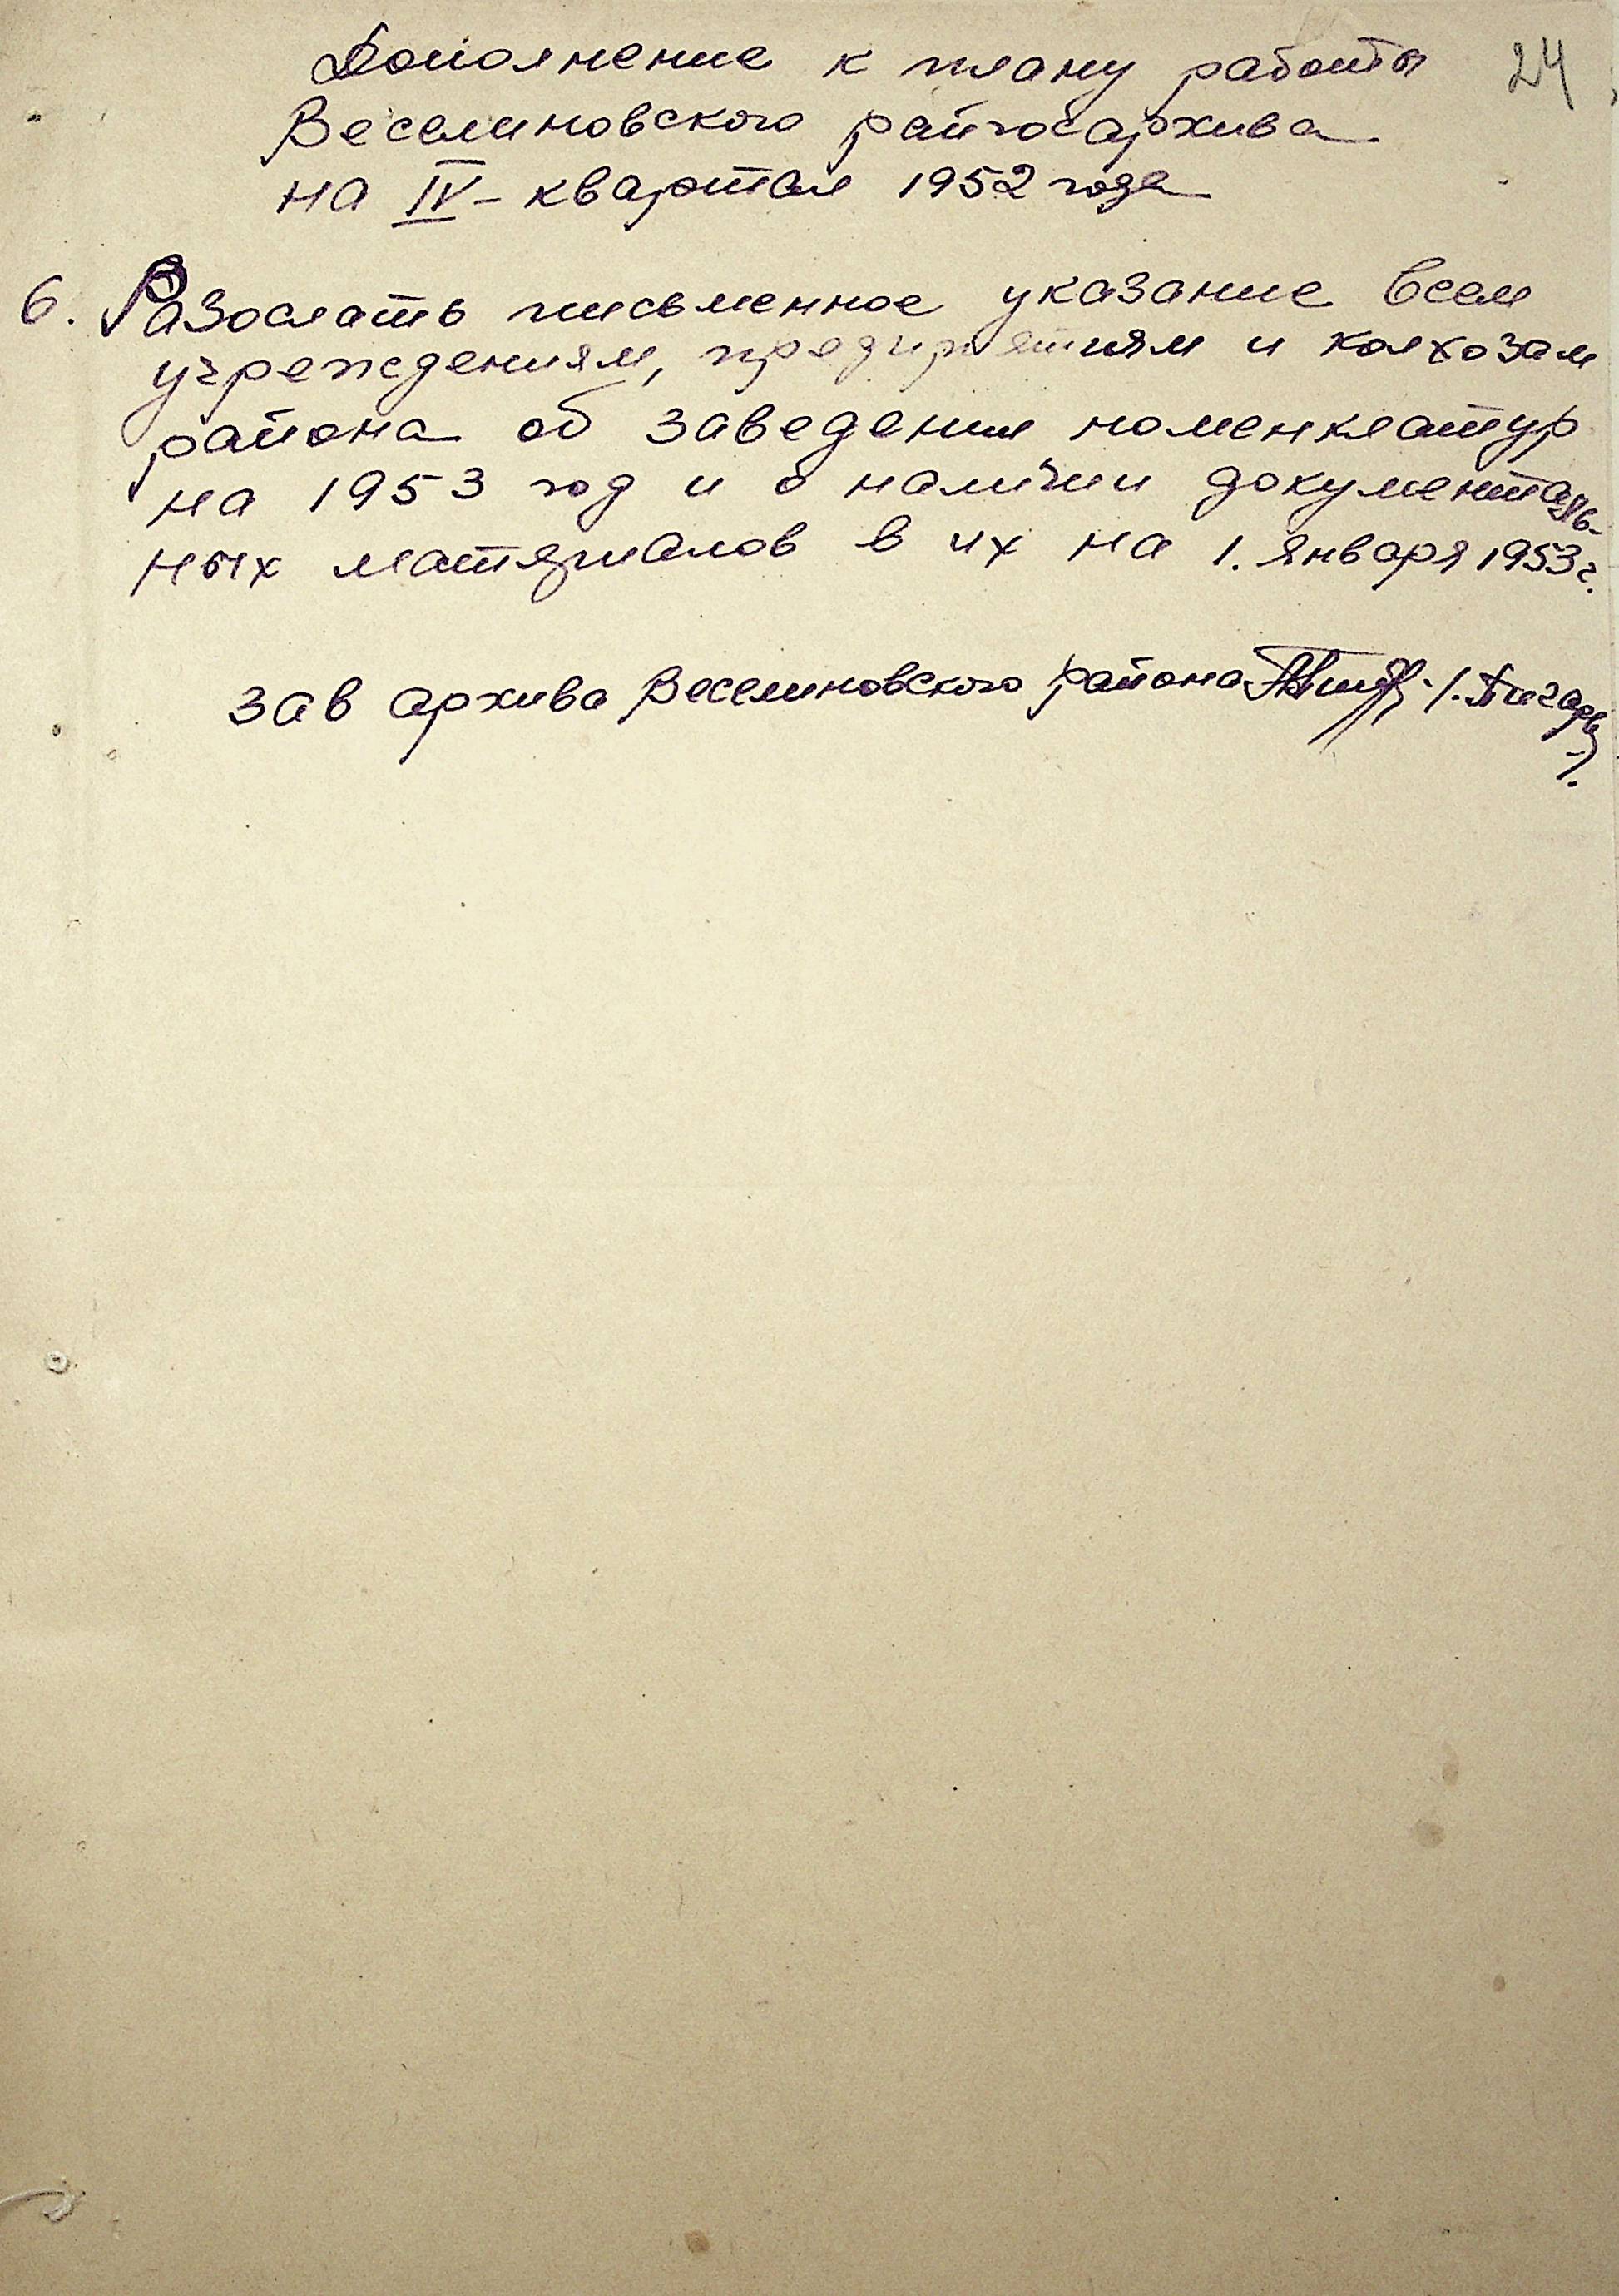 24
Дополнение к плану работы
Веселиновского райгосархива
на IV - квартал 1952 года
6. Разослать письменное указание всем
учреждениям, предприятиям и колхозам
района об заведении номенклатур
на 1953 год и о наличии документаль-
ных матяриалов в их на 1. января 1953 г.
Зав архива Веселиновского района